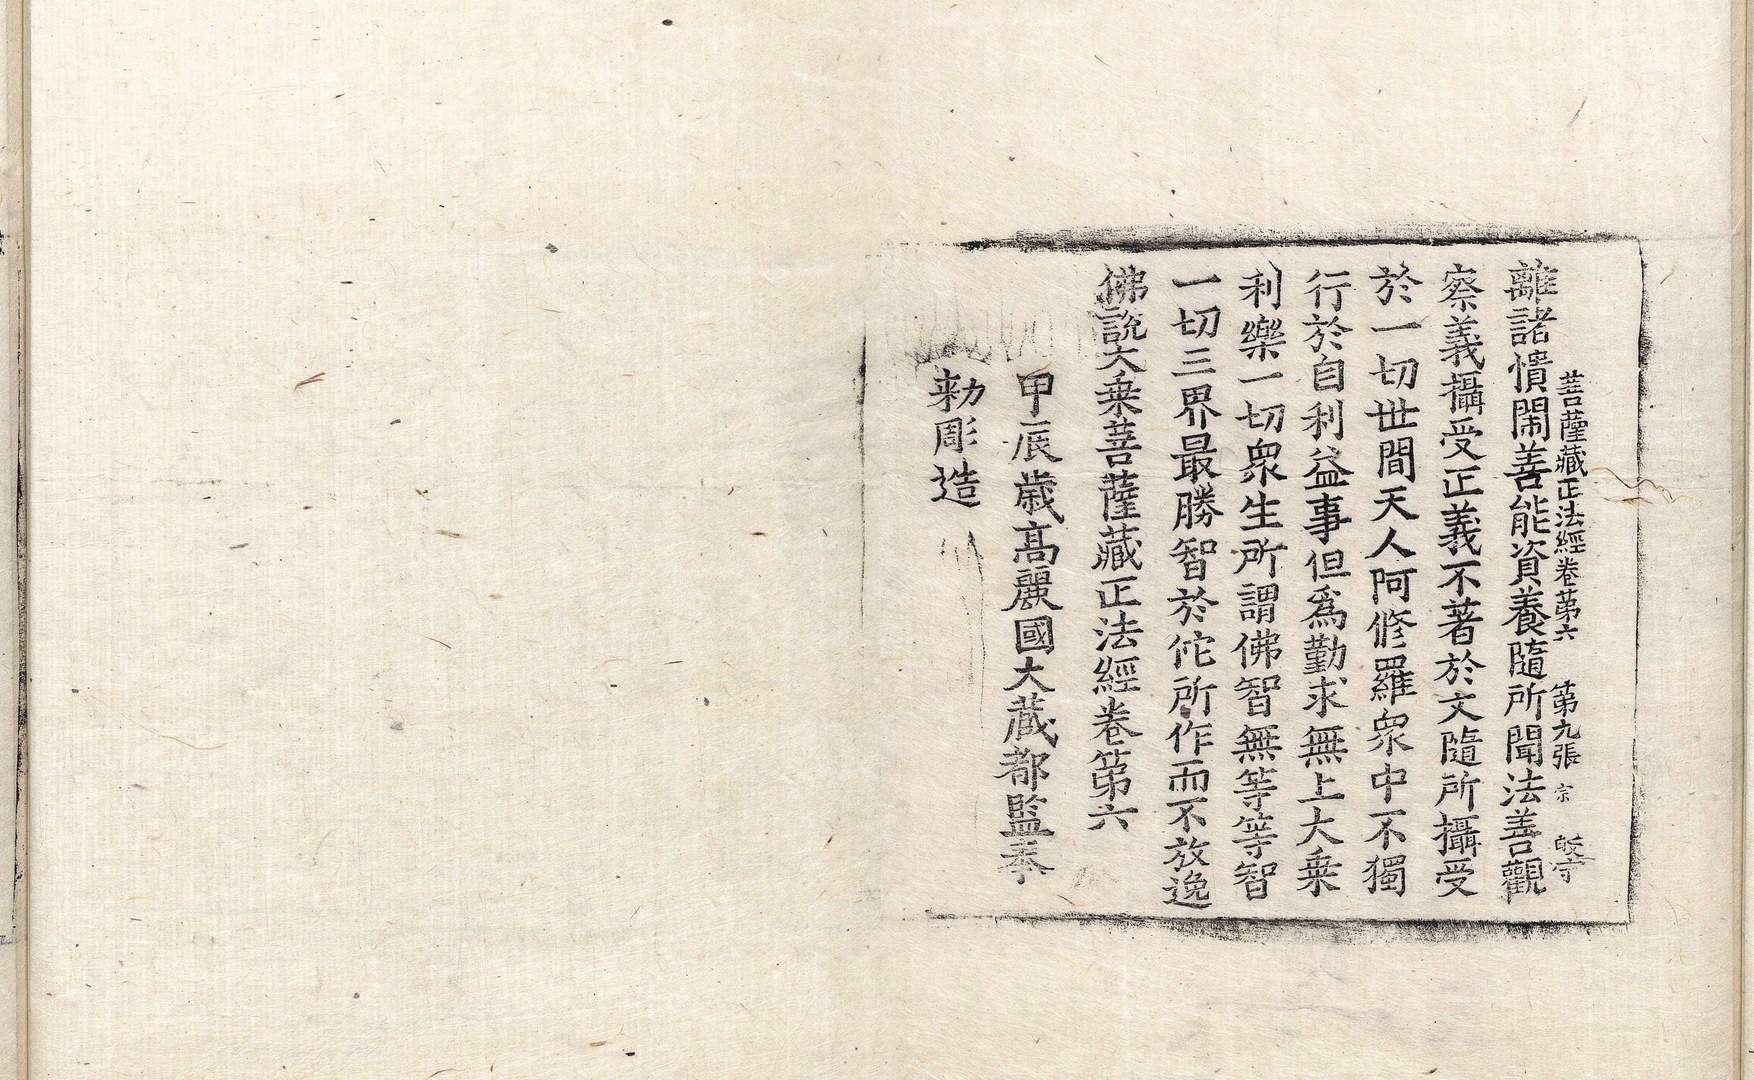 菩薩藏正法經卷第六 第九張 宗
離諸憒閙善能資養隨所聞法善觀
察義攝受正義不著於文隨所攝受
於一切世間天人阿修羅衆中不獨
行於自利益事但爲勤求無上大乗
利樂一切衆生所謂佛智無等等智
一切三界最勝智於佗所作而不放逸
佛說大乗菩薩藏正法經卷第六
甲辰歳高麗國大藏都監奉
勅彫造